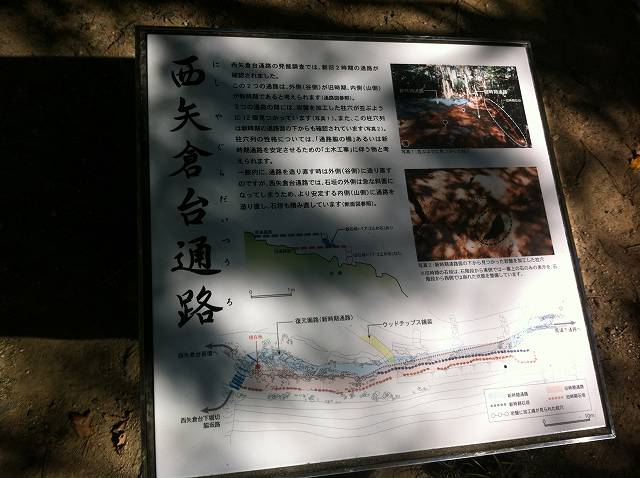 西矢倉台通路
にしやぐらだいつうろ
西矢倉台通路の発掘調査では、新旧2時期の通路が
確認されました。
この2つの通路は、外側(谷側)が旧時期、内側(山側)
が新時期であると考えられます(通路図参照)。
2つの通路の間には、岩盤を加工した柱穴が並ぶよう
に12個見つかっています(写真1)。また、この柱穴列
は新時期の通路面の下からも確認されています(写真2)。
柱穴列の性格については、「通路脇の塀」あるいは新
時期通路を安定させるための「土木工事」に伴う物と考
えられます。
一般的に、通路を造り直す時は外側(谷側)に造り直す
のですが、西矢倉台通路では、石垣の外側は急な斜面に
なってしまうため、より安定する内側(山側)に通路を
造り直し、石垣も積み直しています(断面図参照)。
写真1
写真2:新時期通路面の下から見つかった岩盤を加工した柱穴
新時期通路
旧時期通路
1m
復元園路(新時期通路)
ウッドチップス舗装
現在地
西矢倉台下堀切
新時期通路
旧時期通路
新時期石垣
旧時期石垣
岩盤に加工痕が見られた柱穴
10m